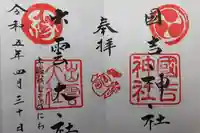 奉拝
國吉神社
國吉神社
出雲大社
出雲大社
縁
令和五年四月三十日